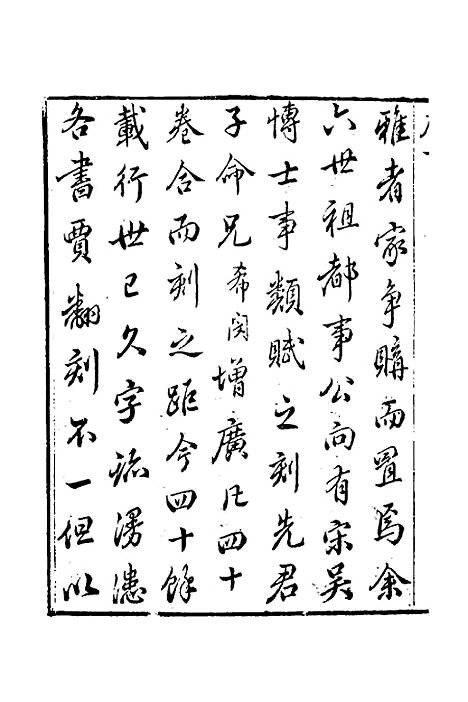 雅者家争購而置焉余
六世祖都事公向有宋吴
博士事類賦之刻先君
子命兄希閔增廣凡四十
卷合而刻之距今四十餘
載行世已久字跡漫漶
各書賈翻刻不一但以